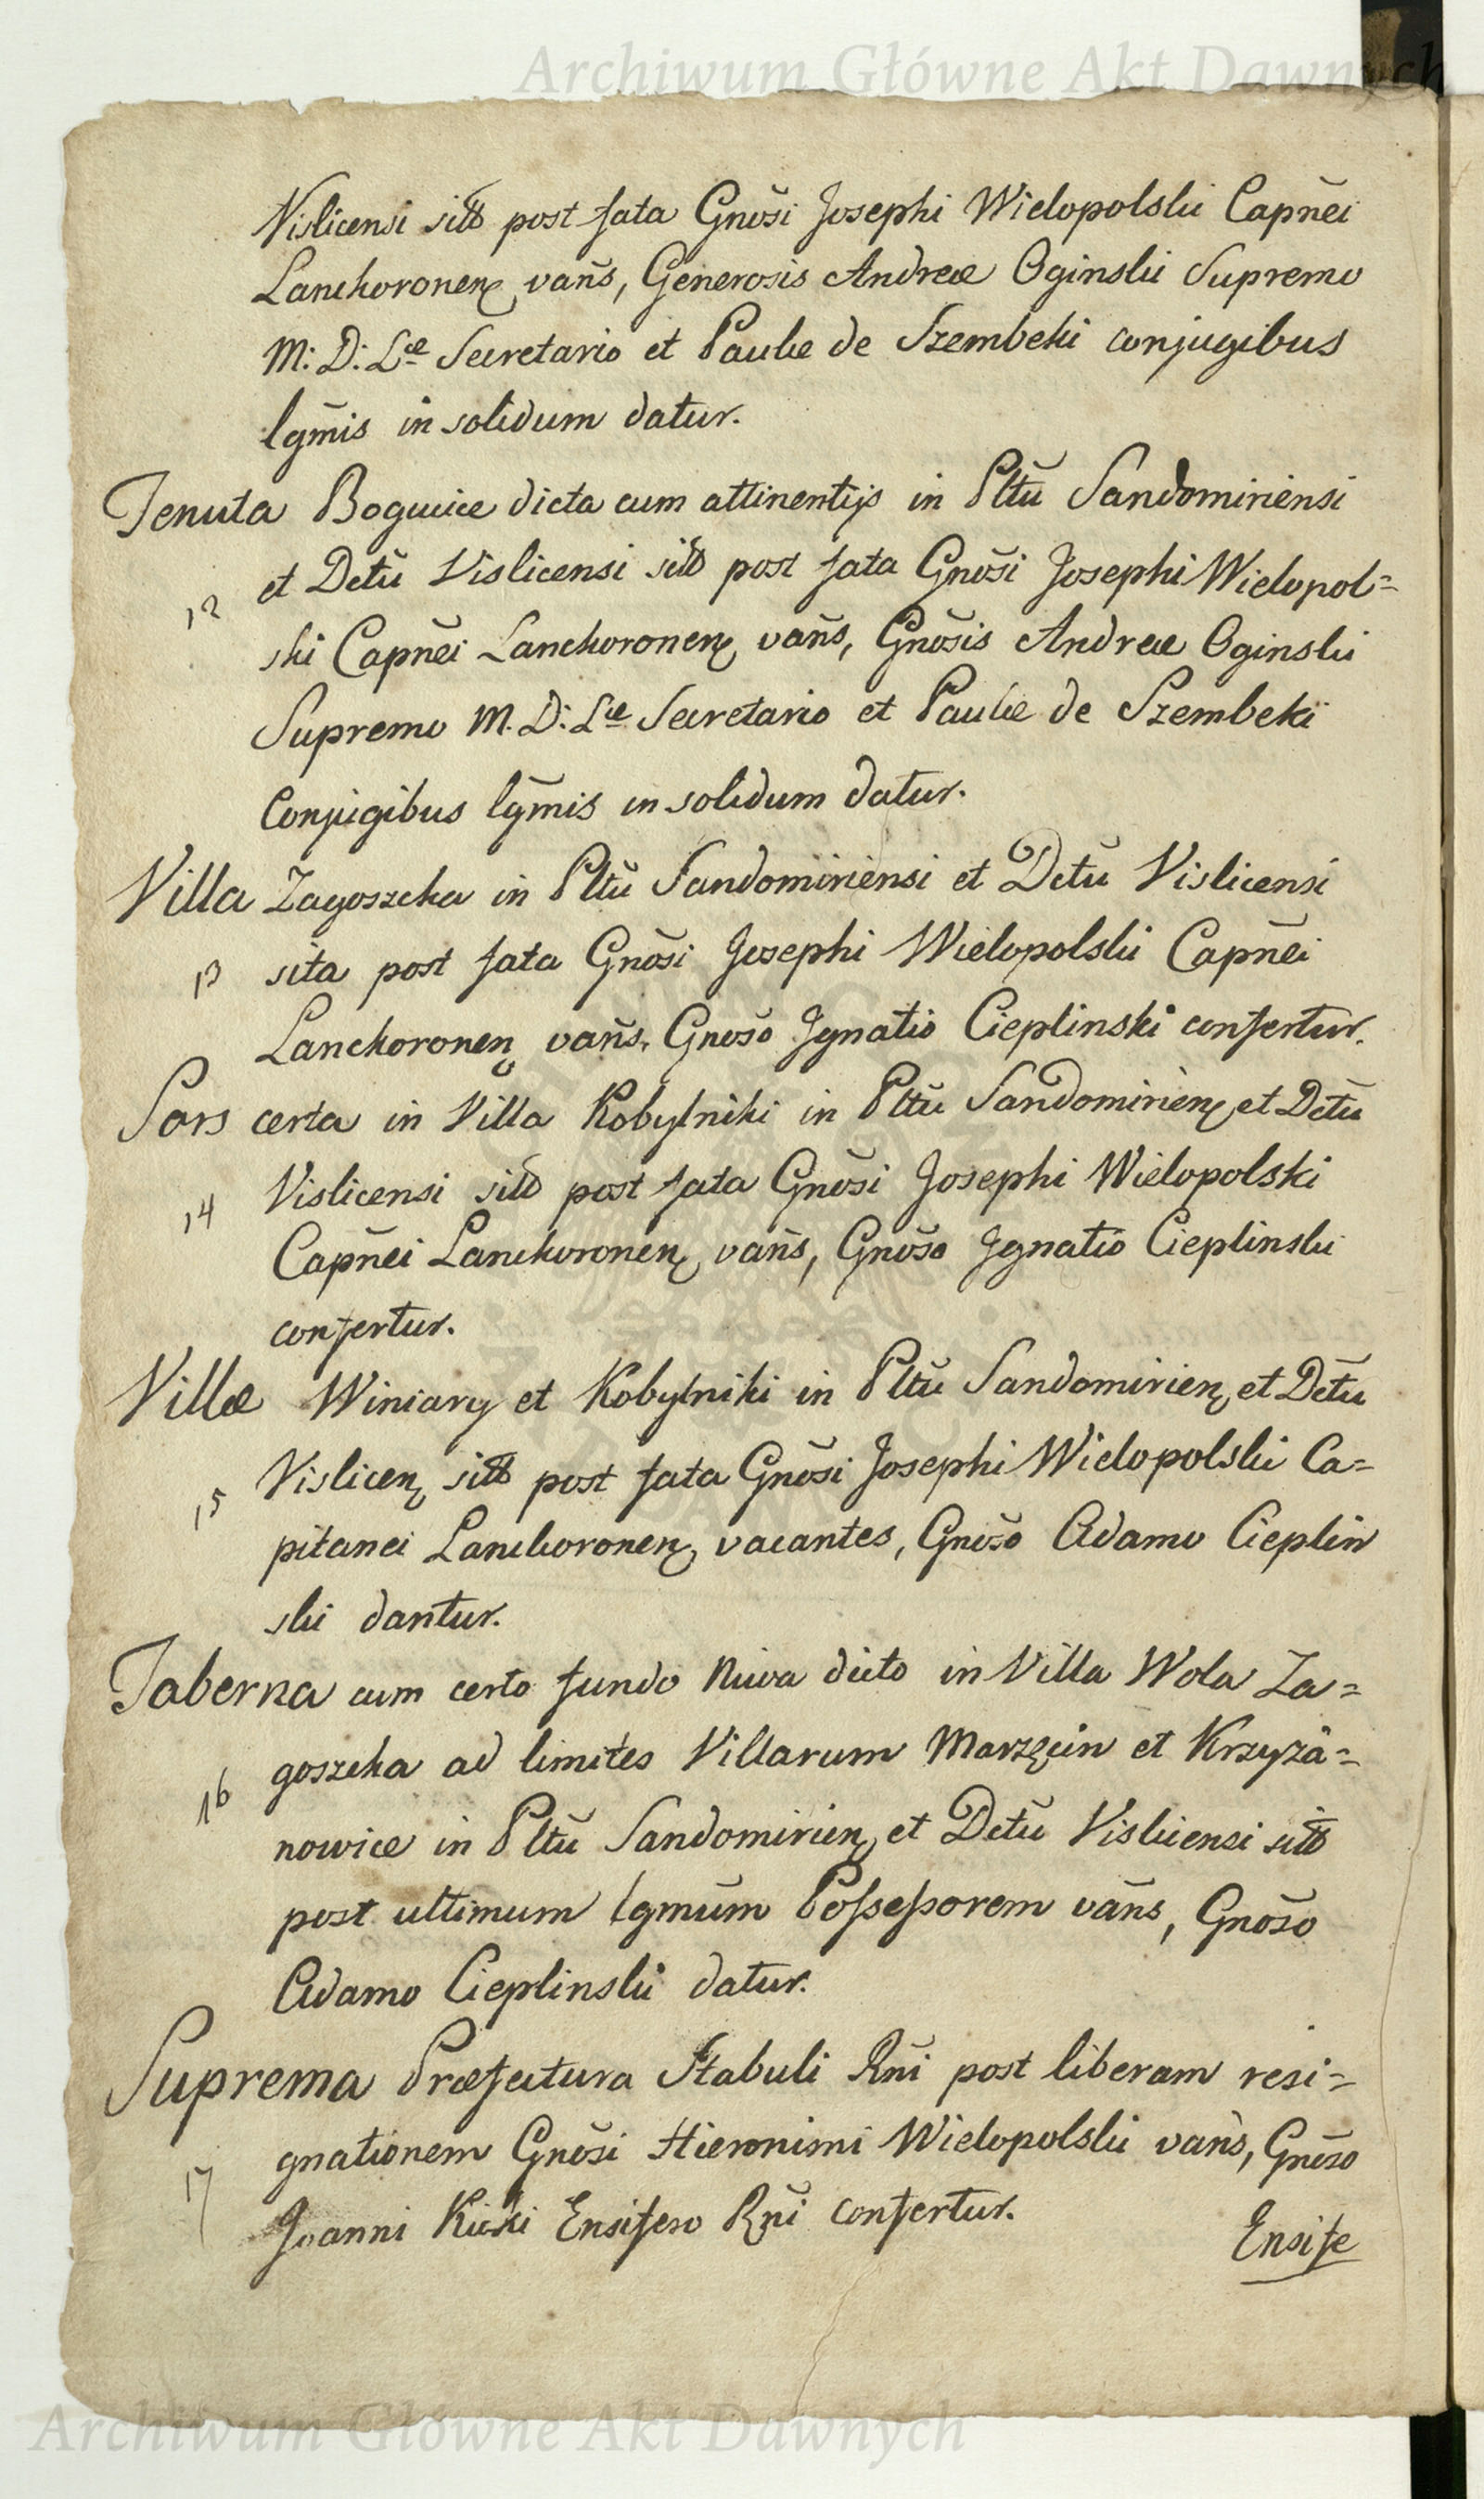 Archiwum Główne Akt Dawnych
Vislicensi sitō post fata Gnōsi Josephi Wielopolski Capnēi
Lanckoronen vans̄, Generosis Andreæ Oginski Supremo
M: D: Læ Secretario et Paulæ de Szembeki conjugibus
lgm̄is in solidum datur.
Tenuta Bogucice dicta cum attinentijs in Pltū Sandomiriensi
12 et Dctū Vislicensi sitō post fata Gnōsi Josephi Wielopol=
ski Capnēi Lanckoronen vans̄, Gnōsis Andreæ Oginski
Supremo M. D: Læ Secretario et Paulæ de Szembeki
Conjugibus lgm̄is in solidum datur.
Villa Zagoszcka in Pltū Sandomiriensi et Dctū Vislicensi
13 sita post fata Gnōsi Josephi Wielopolski Capnēi
Lanckoronen vans̄, Gnōso Jgnatio Cieplinski confertur.
Sors certa in Villa Kobylniki in Pltū Sandomirien et Dctū
14 Vislicensi sitō post fata Gnōsi Josephi Wielopolski
Capnēi Lanckoronen vans̄, Gnōso Jgnatio Cieplinski
confertur.
Villæ Winiary et Kobylniki in Pltū Sandomirien et Dctū
15 Vislicen sitō post fata Gnōsi Josephi Wielopolski Ca=
pitanei Lanckoronen vacantes, Gnōso Adamo Cieplin
ski dantur.
Taberna cum certo fundo Niwa dicto in Villa Wola Za=
16 goszcka ad limites Villarum Marzęcin et Krzyża=
nowice in Pltū Sandomirien et Dctū Vislicensi sitō
post ultimum lgmūm Possessorem vans̄, Gnōso
Adamo Cieplinski datur.
Suprema Præfectura Stabuli Rnī post liberam resi=
17 gnationem Gnōsi Hieronimi Wielopolski vans̄, Gnōso
Joanni Kicki Ensifero Rnī confertur.
Ensife
Archiwum Główne Akt Dawnych